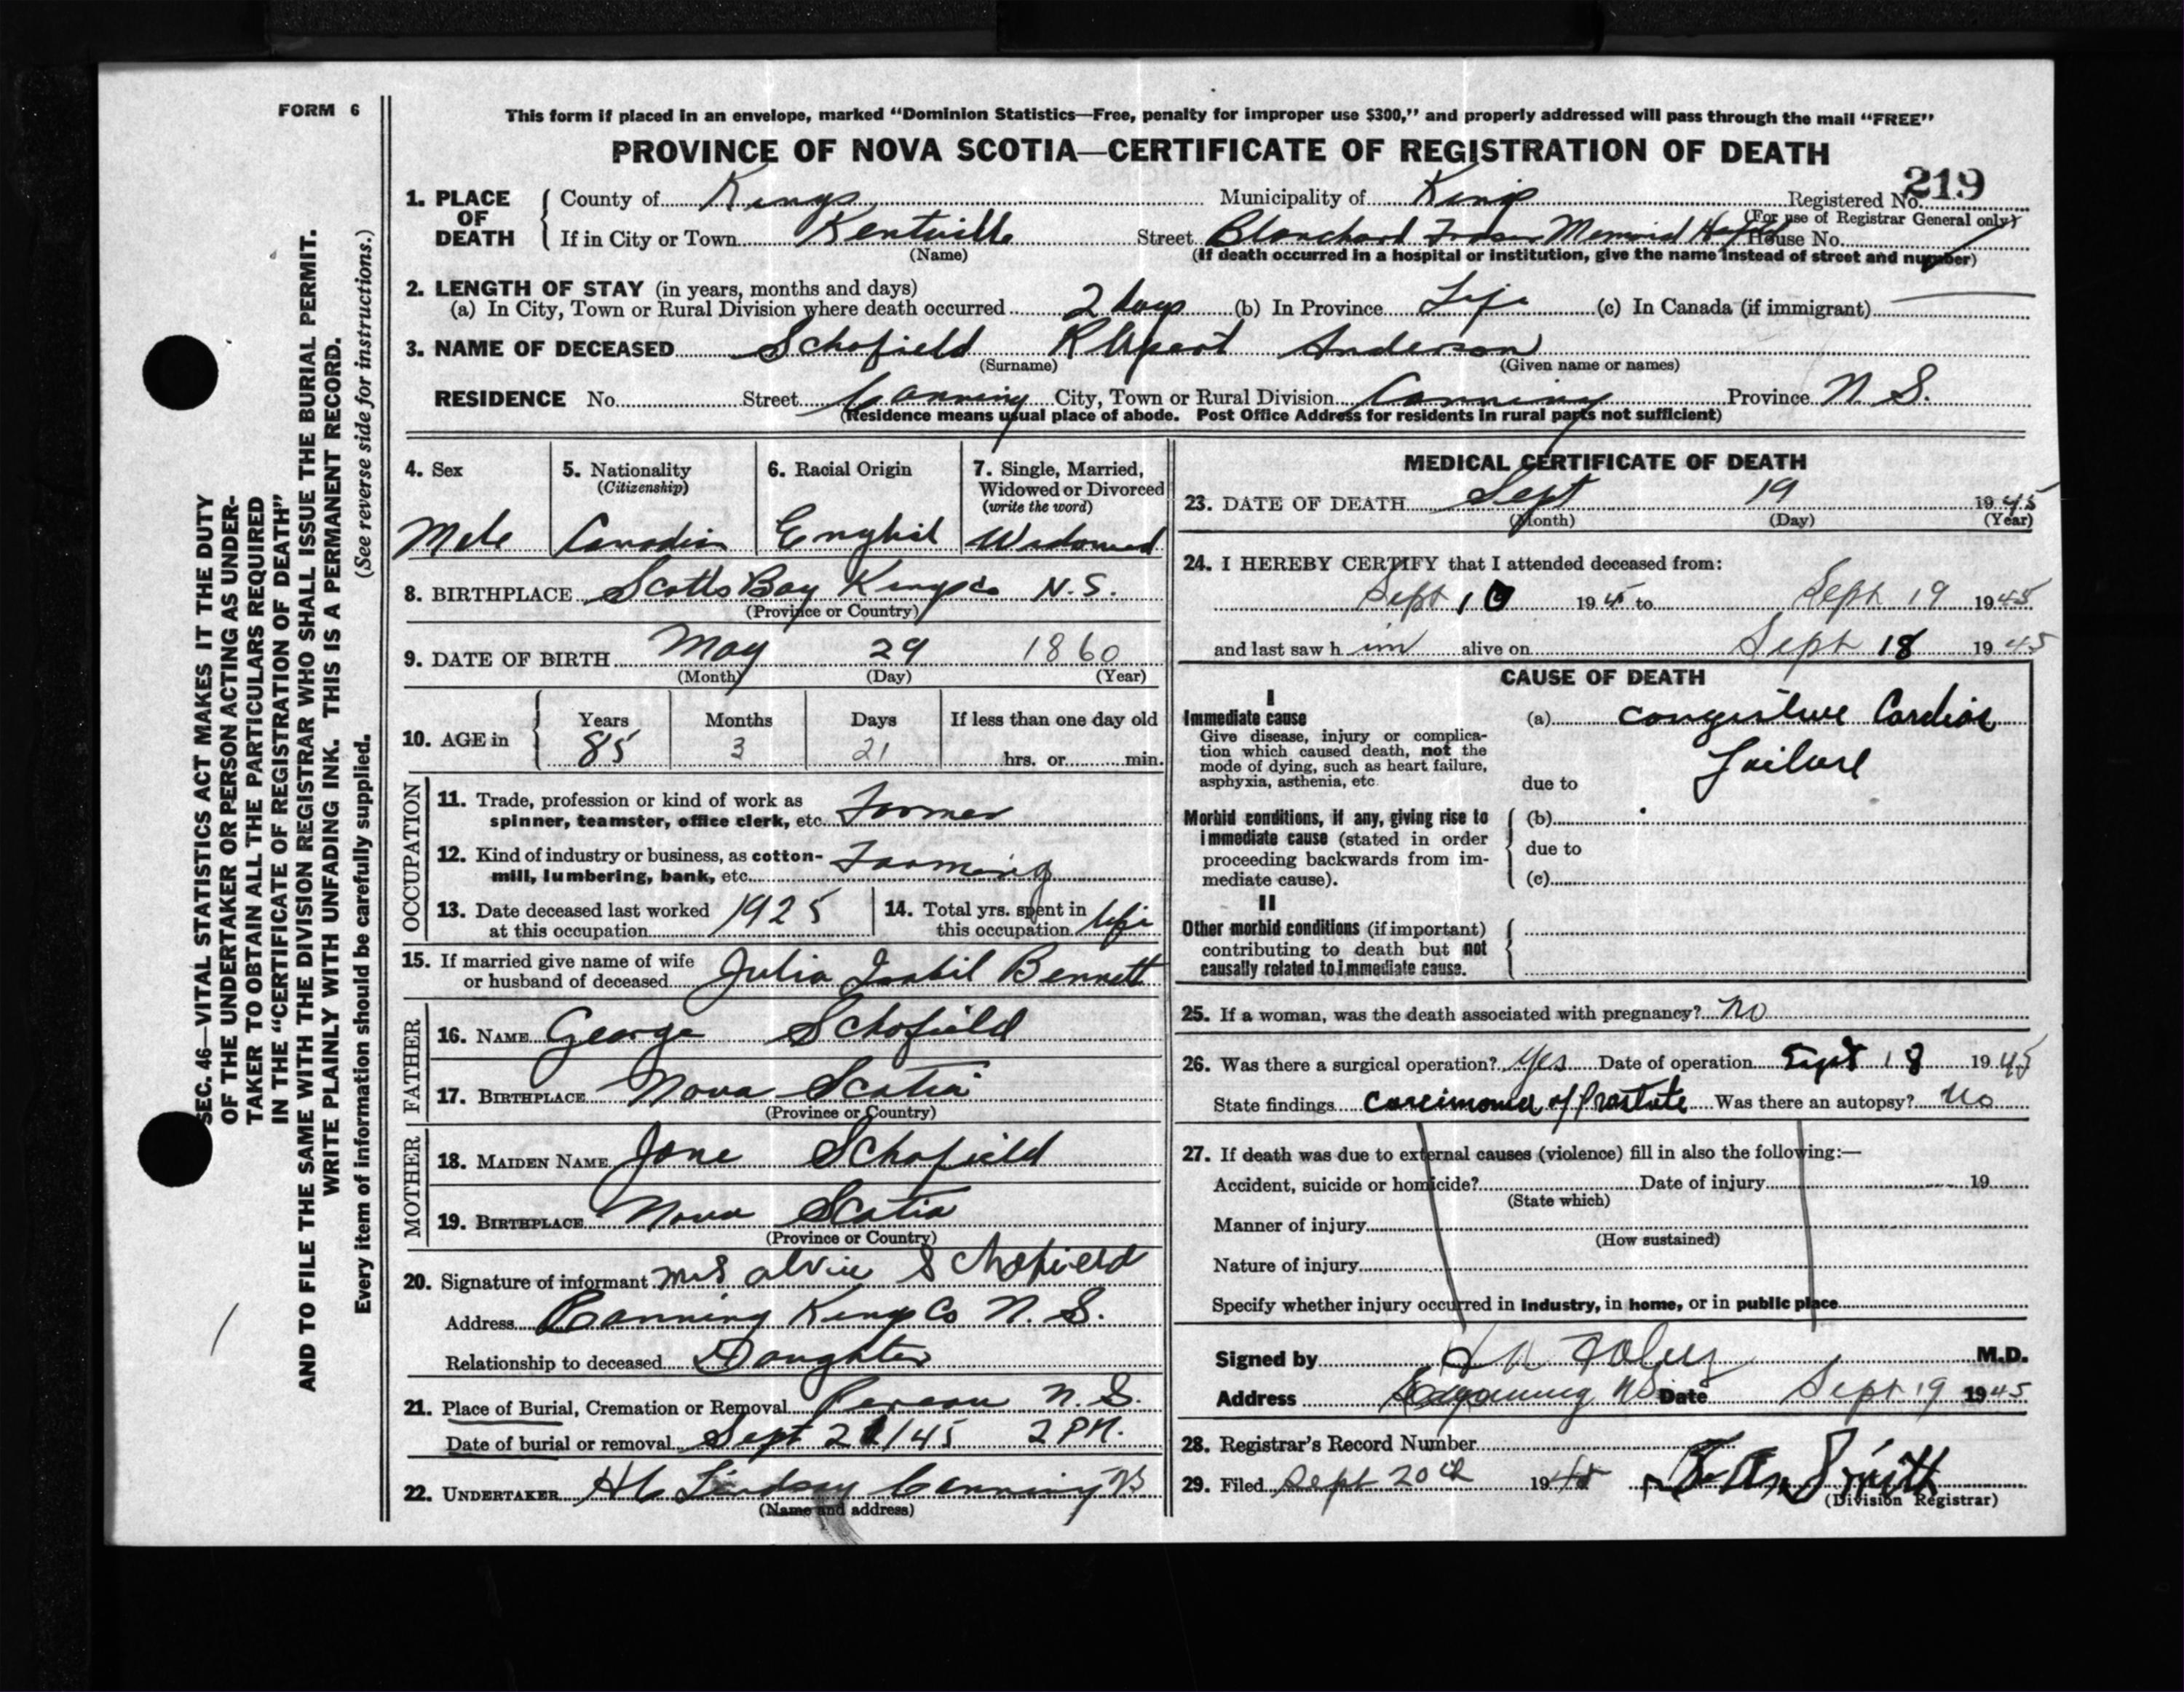 FORM 6
This form if placed in an envelope, marked “Dominion Statistics—Free, penalty for improper use $300,” and properly addressed will pass through the mail “FREE”
PROVINCE OF NOVA SCOTIA—CERTIFICATE OF REGISTRATION OF DEATH
219
1. PLACE OF DEATH County of Kings Municipality of Kings Registered No.
(For use of Registrar General only)
If in City or Town Kentville Street Blanchard Fraser Memorial Hospital House No.
(Name) (If death occurred in a hospital or institution, give the name instead of street and number)
2. LENGTH OF STAY (in years, months and days)
(a) In City, Town or Rural Division where death occurred 2 days (b) In Province Life (c) In Canada (if immigrant)
3. NAME OF DECEASED Schofield Anderson
(Surname) (Given name or names)
RESIDENCE No. Street Canning City, Town or Rural Division Canning Province N. S.
(Residence means usual place of abode. Post Office Address for residents in rural parts not sufficient)
4. Sex
Male
5. Nationality
(Citizenship)
Canadian
6. Racial Origin
English
7. Single, Married,
Widowed or Divorced
(write the word)
Widowed
8. BIRTHPLACE Scotts Bay Kings Co N.S.
(Province or Country)
9. DATE OF BIRTH May 29 1860
(Month) (Day) (Year)
10. AGE in Years Months Days If less than one day old
85 3 21 hrs. or min.
OCCUPATION
11. Trade, profession or kind of work as
spinner, teamster, office clerk, etc. Farmer
12. Kind of industry or business, as cotton-
mill, lumbering, bank, etc. Farming
13. Date deceased last worked
at this occupation 1925
14. Total yrs. spent in
this occupation life
15. If married give name of wife
or husband of deceased Julia Isabil Bennett
FATHER
16. NAME George Schofield
17. BIRTHPLACE Nova Scotia
(Province or Country)
MOTHER
18. MAIDEN NAME Jane Schofield
19. BIRTHPLACE Nova Scotia
(Province or Country)
20. Signature of informant Mrs Schofield
Address Canning Kings Co N. S.
Relationship to deceased Daughter
21. Place of Burial, Cremation or Removal Pereau N. S.
Date of burial or removal Sept 21/45 2 P.M.
22. UNDERTAKER H C Lindsay Canning NS
(Name and address)
MEDICAL CERTIFICATE OF DEATH
23. DATE OF DEATH Sept 19 1945
(Month) (Day) (Year)
24. I HEREBY CERTIFY that I attended deceased from:
Sept 10 1945 to Sept 19 1945
and last saw him alive on Sept 18 1945
CAUSE OF DEATH
I
Immediate cause
Give disease, injury or complica-
tion which caused death, not the
mode of dying, such as heart failure,
asphyxia, asthenia, etc.
(a) Congestive Cardiac
Failure
due to
Morbid conditions, if any, giving rise to
immediate cause (stated in order
proceeding backwards from im-
mediate cause).
(b)
due to
(c)
II
Other morbid conditions (if important)
contributing to death but not
causally related to immediate cause.
25. If a woman, was the death associated with pregnancy? No
26. Was there a surgical operation? Yes Date of operation Sept 18 1945
State findings Carcinoma of Prostate Was there an autopsy? No
27. If death was due to external causes (violence) fill in also the following:—
Accident, suicide or homicide? Date of injury 19
(State which)
Manner of injury
(How sustained)
Nature of injury
Specify whether injury occurred in industry, in home, or in public place
Signed by M.D.
Address Canning NS Date Sept 19 1945
28. Registrar's Record Number
29. Filed Sept 20th 1945 Smith
(Division Registrar)
SEC. 46—VITAL STATISTICS ACT MAKES IT THE DUTY
OF THE UNDERTAKER OR PERSON ACTING AS UNDER-
TAKER TO OBTAIN ALL THE PARTICULARS REQUIRED
IN THE “CERTIFICATE OF REGISTRATION OF DEATH”
AND TO FILE THE SAME WITH THE DIVISION REGISTRAR WHO SHALL ISSUE THE BURIAL PERMIT.
WRITE PLAINLY WITH UNFADING INK. THIS IS A PERMANENT RECORD.
Every item of information should be carefully supplied. (See reverse side for instructions.)